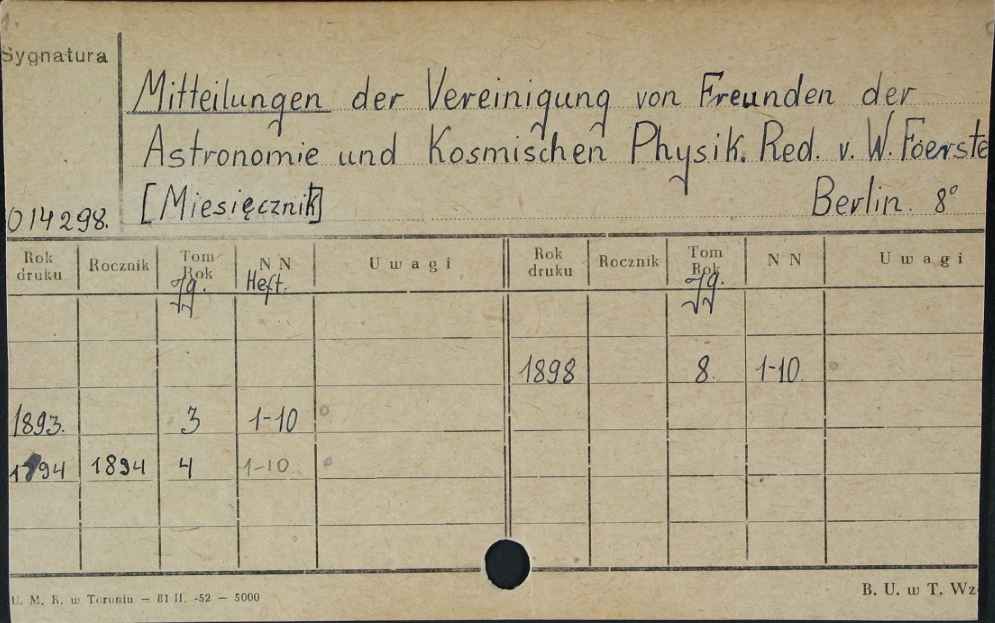 Sygnatura
Mitteilungen der Vereinigung von Freunden der
Astronomie und Kosmischen Physik. Red. v. W. Foerste
[Miesięcznik] Berlin. 8°
014298.
Rok druku Rocznik Tom Rok N N U w a g i Rok druku Rocznik Tom Rok N N U w a g i
Jg. Heft. Jg.
1898 8 1-10
1893. 3 1-10
1894 1894 4 1-10
U. M. K. w Toruniu — 81 II. -52 — 5000
B. U. w T. Wz